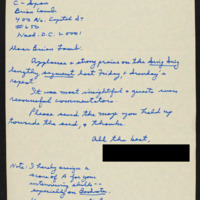 C-Span
Brian Lamb
400 No. Capitol St
#650
Wash. D.C. 20001
Dear Brian Lamb:
Applause & strong praise on the
lengthy segment last Friday, & Sunday's
repeat.
It was most insightful & guests were
commentators.
Please send the map you held up
towards the end, & thanks
All the best,
Note: I hereby assign a
of A for your
interviewing skills--
especially on